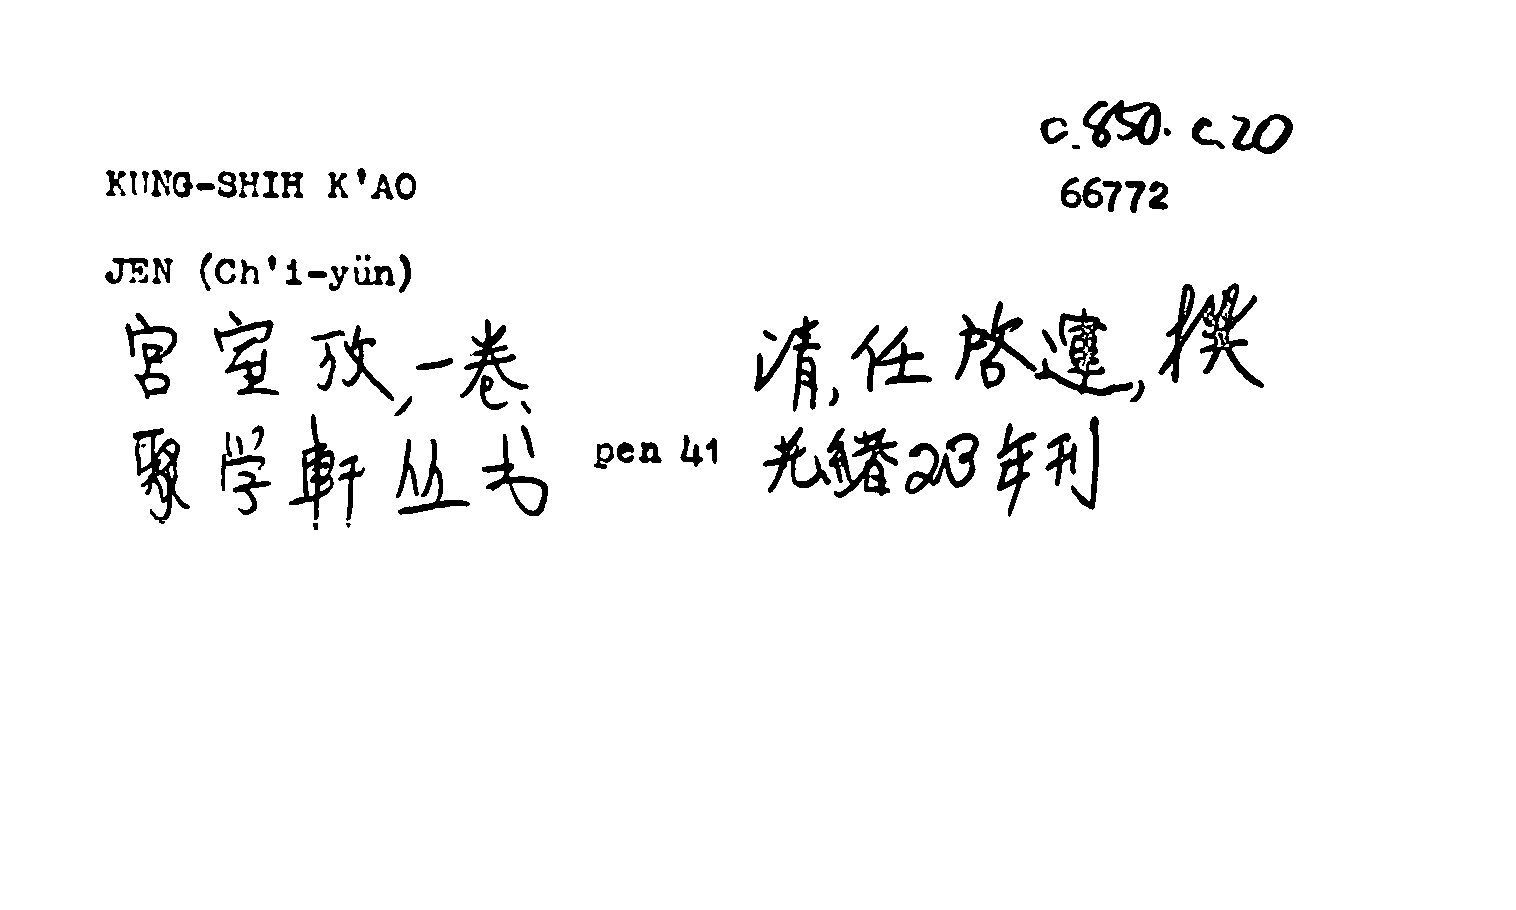 c.850.c.20
66772
KUNG-SHIH K'AO
JEN (Ch'i-yün)
宮室攷,一卷、 清,任啓運,撰
聚学軒丛书 pen 41 光緒23年刊